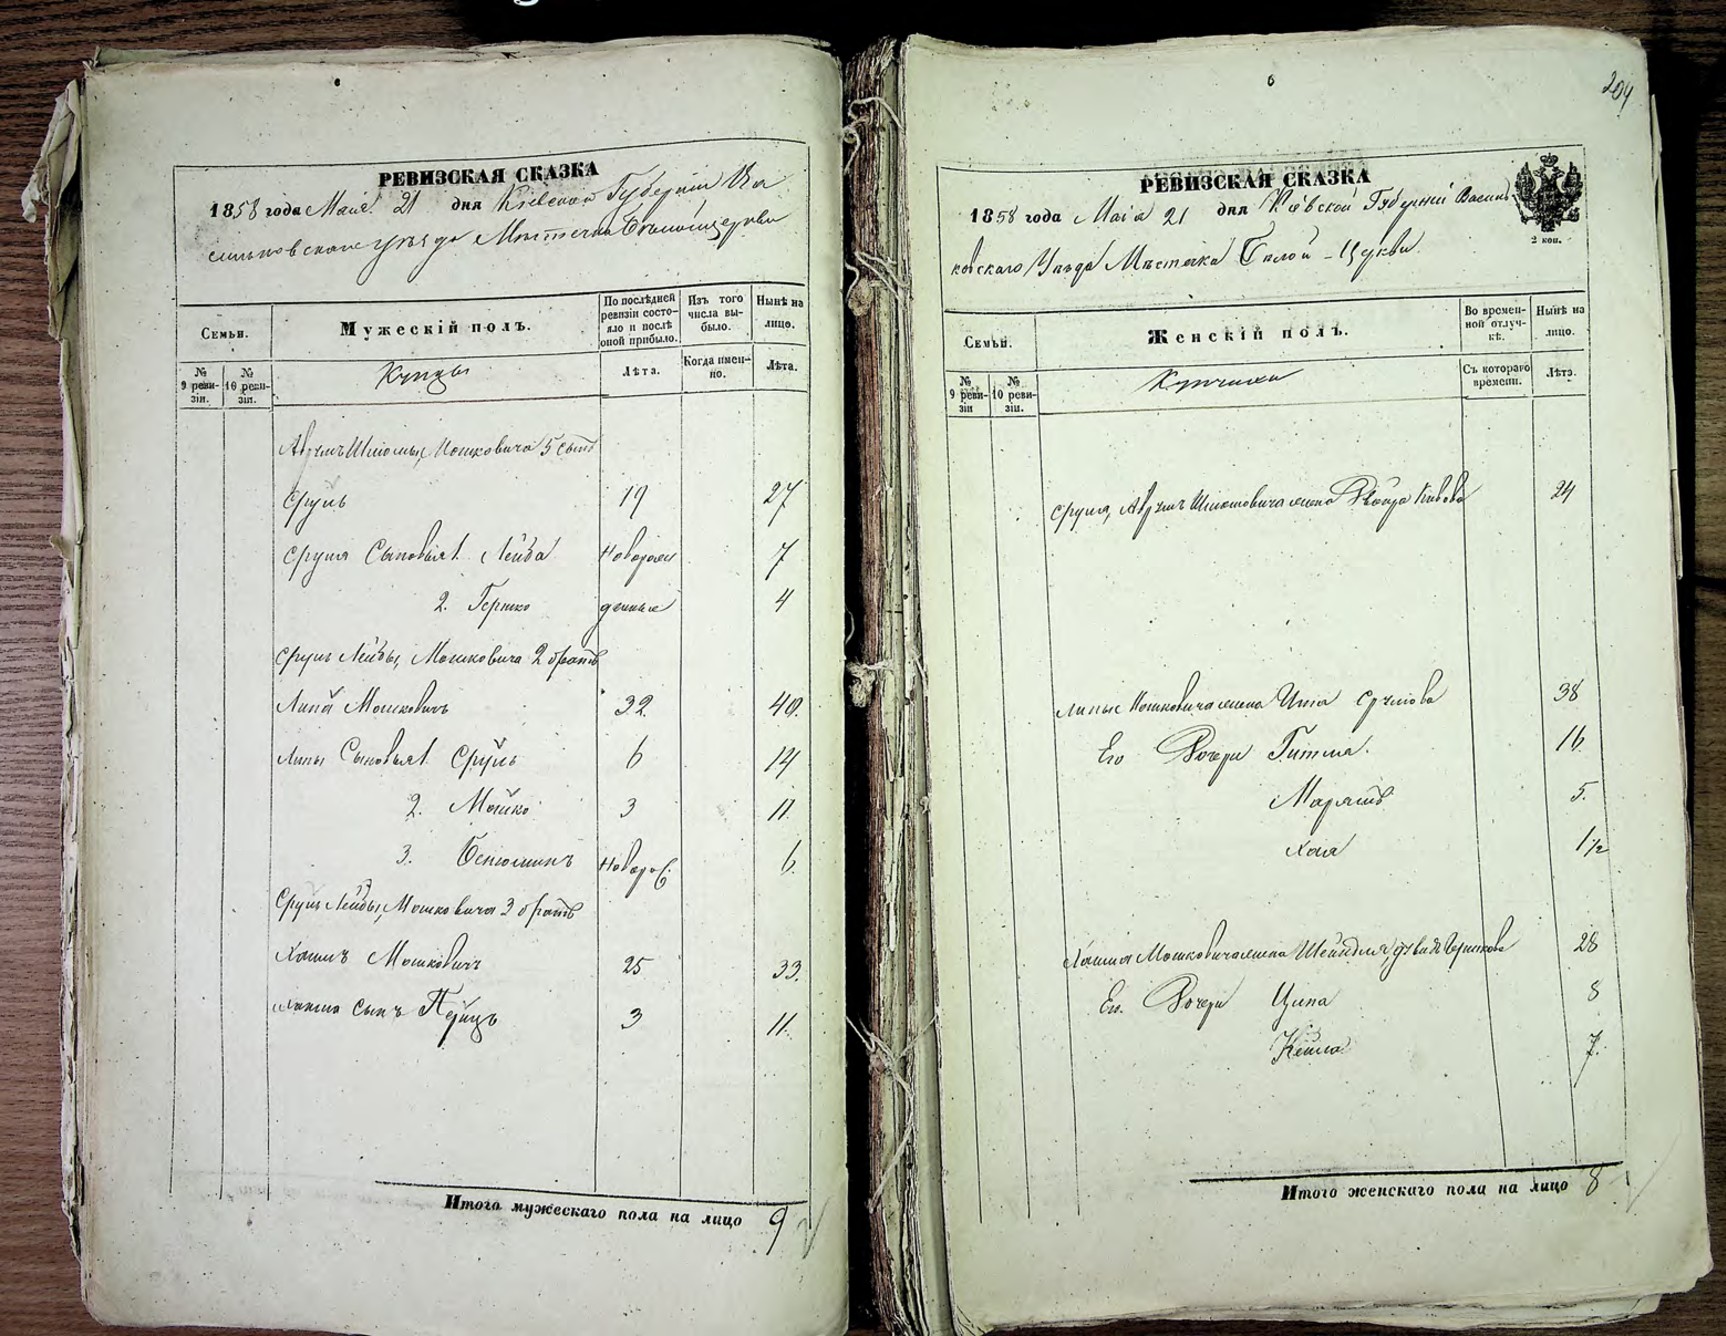 РЕВИЗСКАЯ СКАЗКА
1858 года Маія 21 дня Кіевской Губерніи Ва
сильковскаго уѣзда Мѣстечка Бѣлойцеркви
Семьи.
Мужескій полъ.
По послѣдней ревизіи состояло и послѣ оной прибыло.
Изъ того числа выбыло.
Нынѣ на лицо.
№ 9 ревизіи.
№ 10 ревизіи.
Купцы
Лѣта.
Когда именно.
Лѣта.
Мошковича 5 сынъ
Сруль 19 27
Сруля Сыновья 1. Лейба Новорож 7
2. Гершко денные 4
Сруль Лейбы, Мошковича 2 братъ
Липа Мошковичъ 32. 40.
Липы Сыновья 1. Сруль 6 14
2. Мошко 3 11.
3. Бенюминъ Новоро 6.
Сруль Лейбы, Мошковича 3 братъ
Хаимъ Мошковичъ 25 33.
Хаима сынъ Пейсцъ 3 11.
Итого мужескаго пола на лицо 9
204
РЕВИЗСКАЯ СКАЗКА
1858 года Маія 21 дня Кіевской Губерніи Василь
ковскаго Уѣзда Мѣстечка Бѣлой-Церкви
2 коп.
Семьи.
Женскій полъ.
Во временной отлучкѣ.
Нынѣ на лицо.
№ 9 ревизіи
№ 10 ревизіи.
Купчихи
Съ котораго времени.
Лѣта.
Сруля, жена 24
Липы Мошковича жена Ита Срулова 38
Его Дочери Гитля. 16
Марьясъ 5.
Хая 1½
Хаима Мошковича жена Шейндля Гершкова 28
Его Дочери Ципа 8
Кейла 7.
Итого женскаго пола на лицо 8